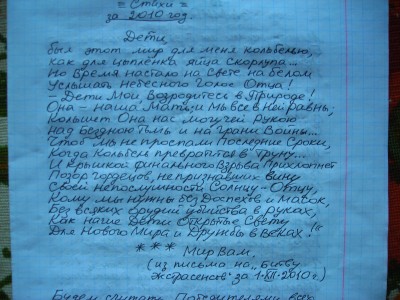 = Стихи =
за 2010 год.
Дети
был этот мир для меня колыбелью,
как для цыплёнка яйца скорлупа...
Но Время настало на Свете на белом
Услышать Небесного Голос Отца!
Дети Мои Возродитесь в Природе!
Она - наша Мать, и мы все в Ней равны,
Колышет Она нас могучей Рукою
Над бездною тьмы и на грани Войны...
Чтоб мы не проспали Последние Сроки,
Когда Колыбель превратится в труну...
И Крышкой финального Взрыва Прихлопнет
Позор гордецов, не признавших вину
Своей непослушности Солнцу - Отцу,
Кому мы нужны без Доспехов и Масок,
Без всяких орудий убийства в руках,
Как нагие Дети Открытые Свету
Для Нового Мира и Дружбы в Веках!"
* * * Мир Вам.
(из письма на "Битву
экстрасенсов" за 1-XII-2010 г.)
Будем считать Победителями всех